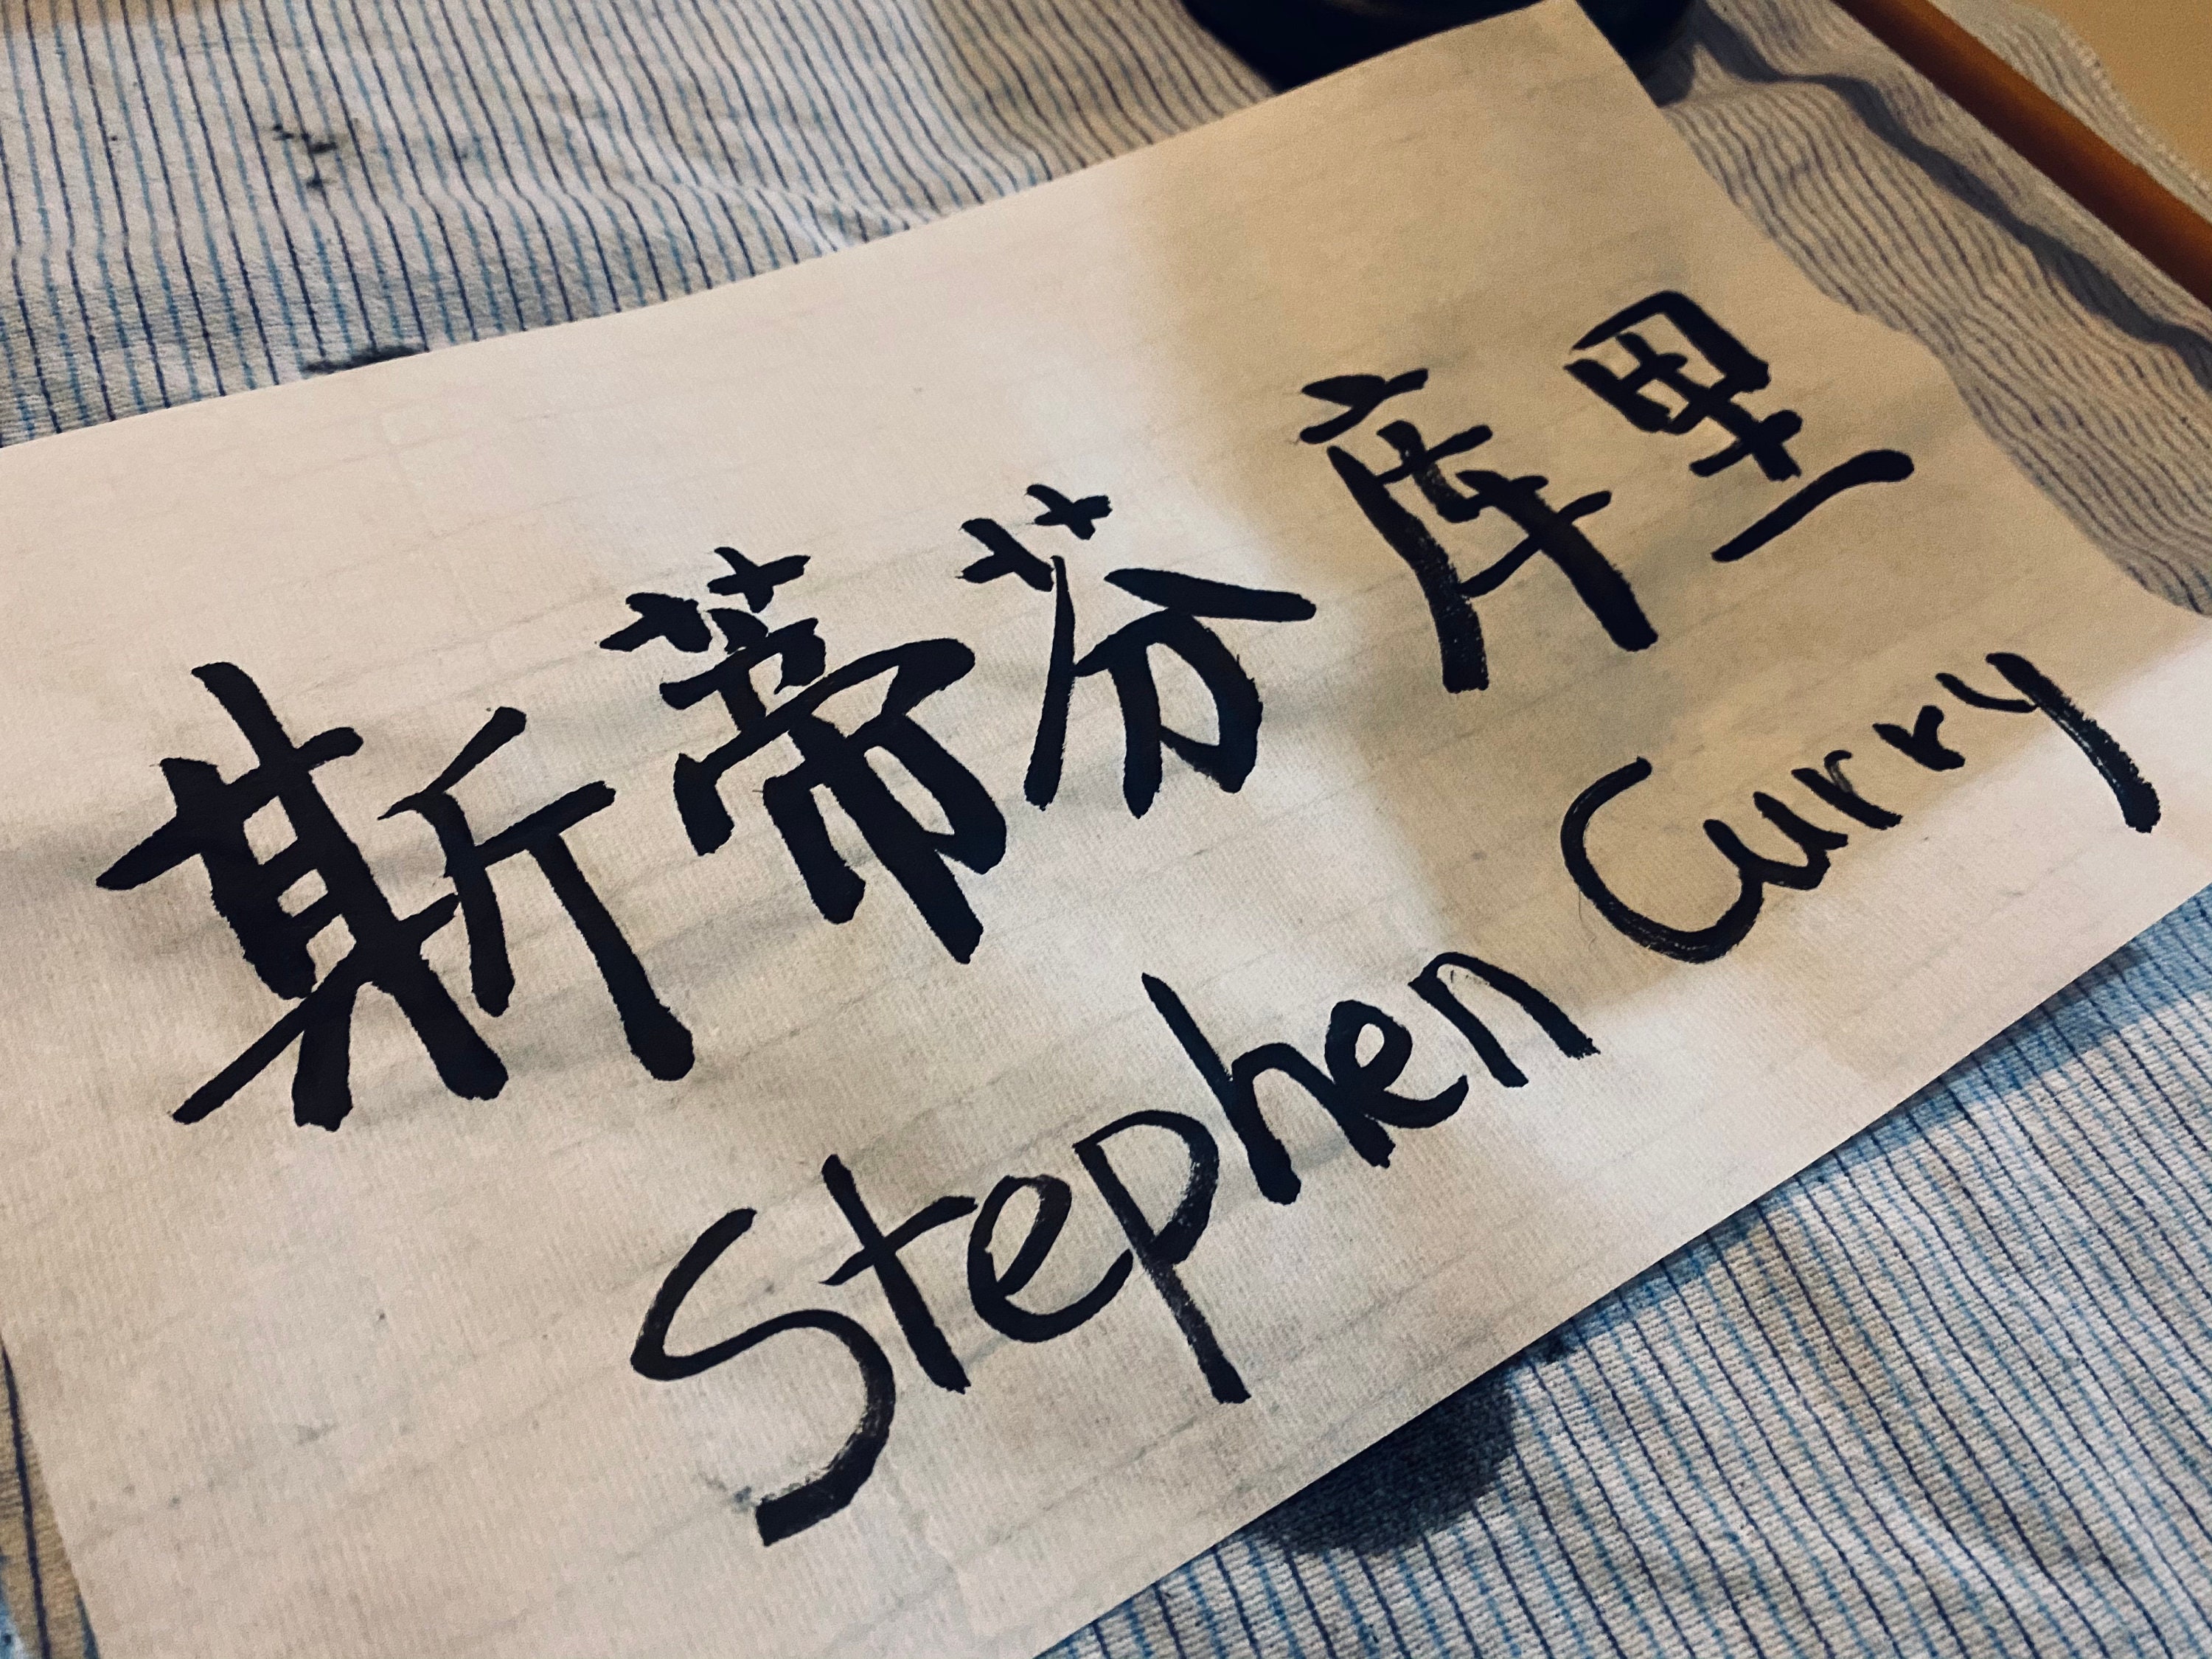 斯蒂芬库里
Stephen Curry